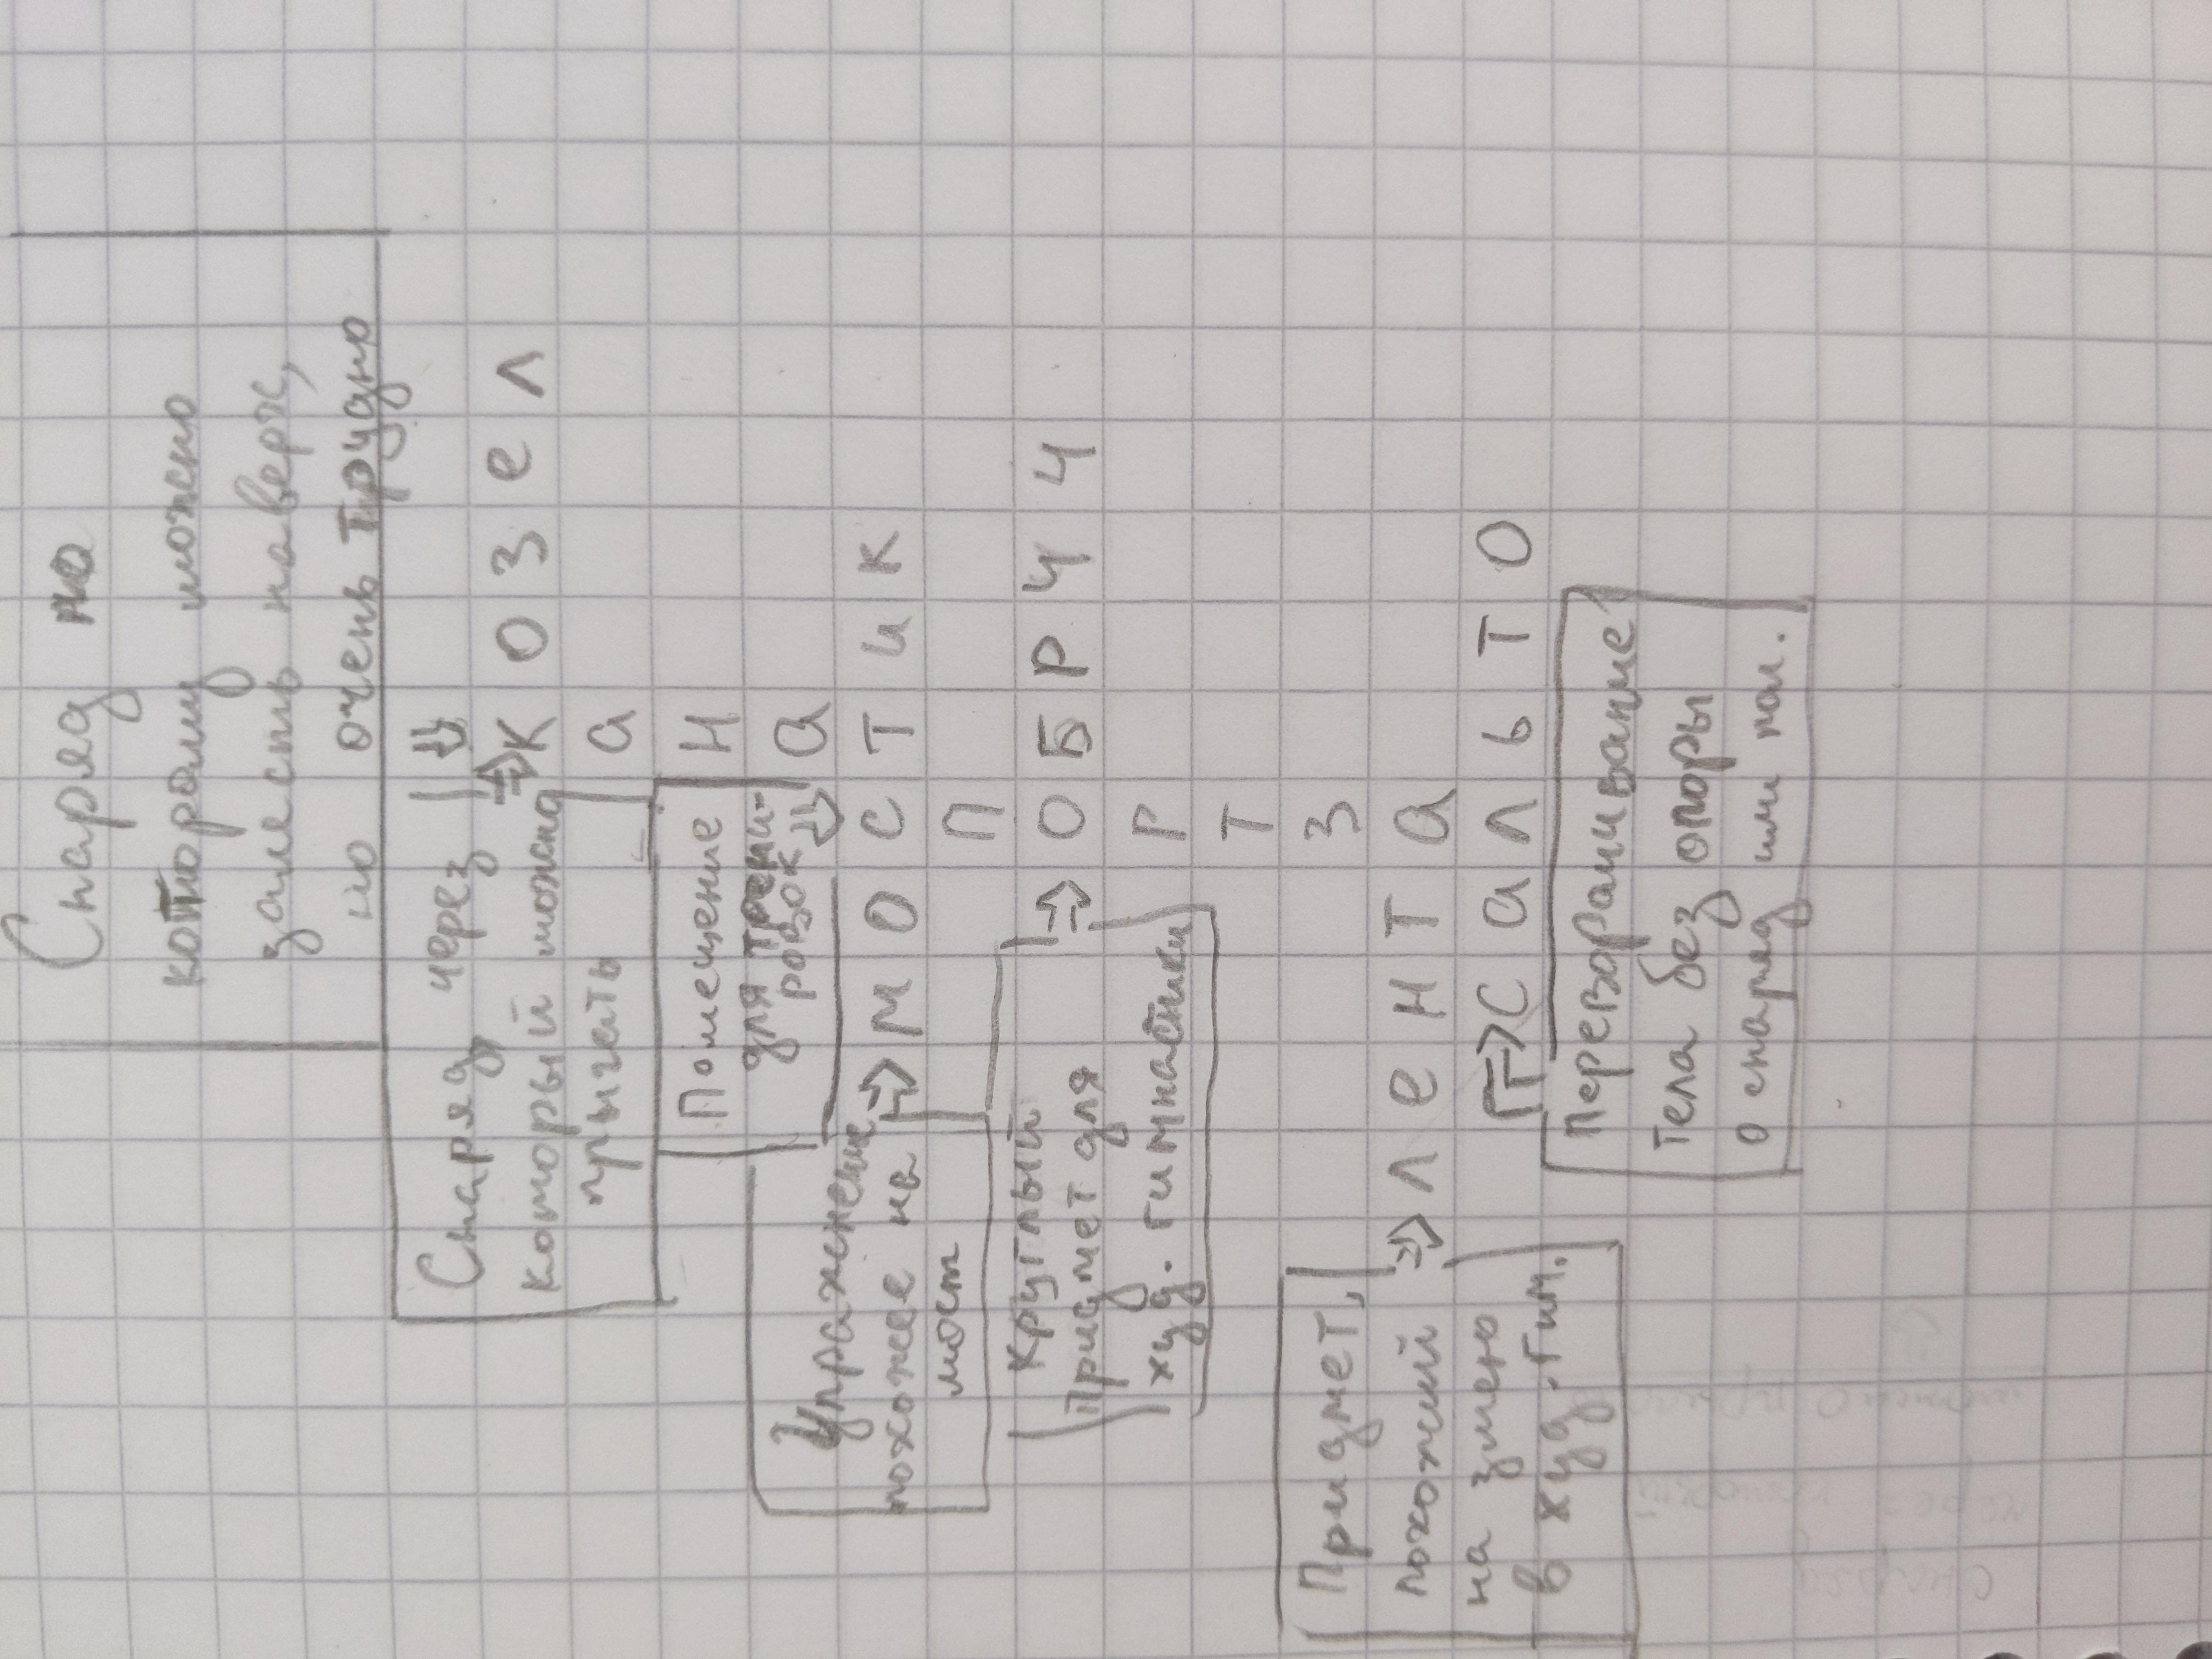 Снаряд по
которому можно
залесть наверх,
но очень трудно
Снаряд через
который можно
прыгать
К О З е Л
а
Помещение
для трени-
ровок
Н
а
Упражнение
похожее на
мост
М О С Т И К
П
Круглый
придмет для
худ. гимнастики
О Б Р У Ч
Р
Т
З
Придмет,
похожий
на змею
в худ. гим.
Л е Н Т а
С а Л Ь Т О
Переворачивание
тела без опоры
о снаряд или пол.